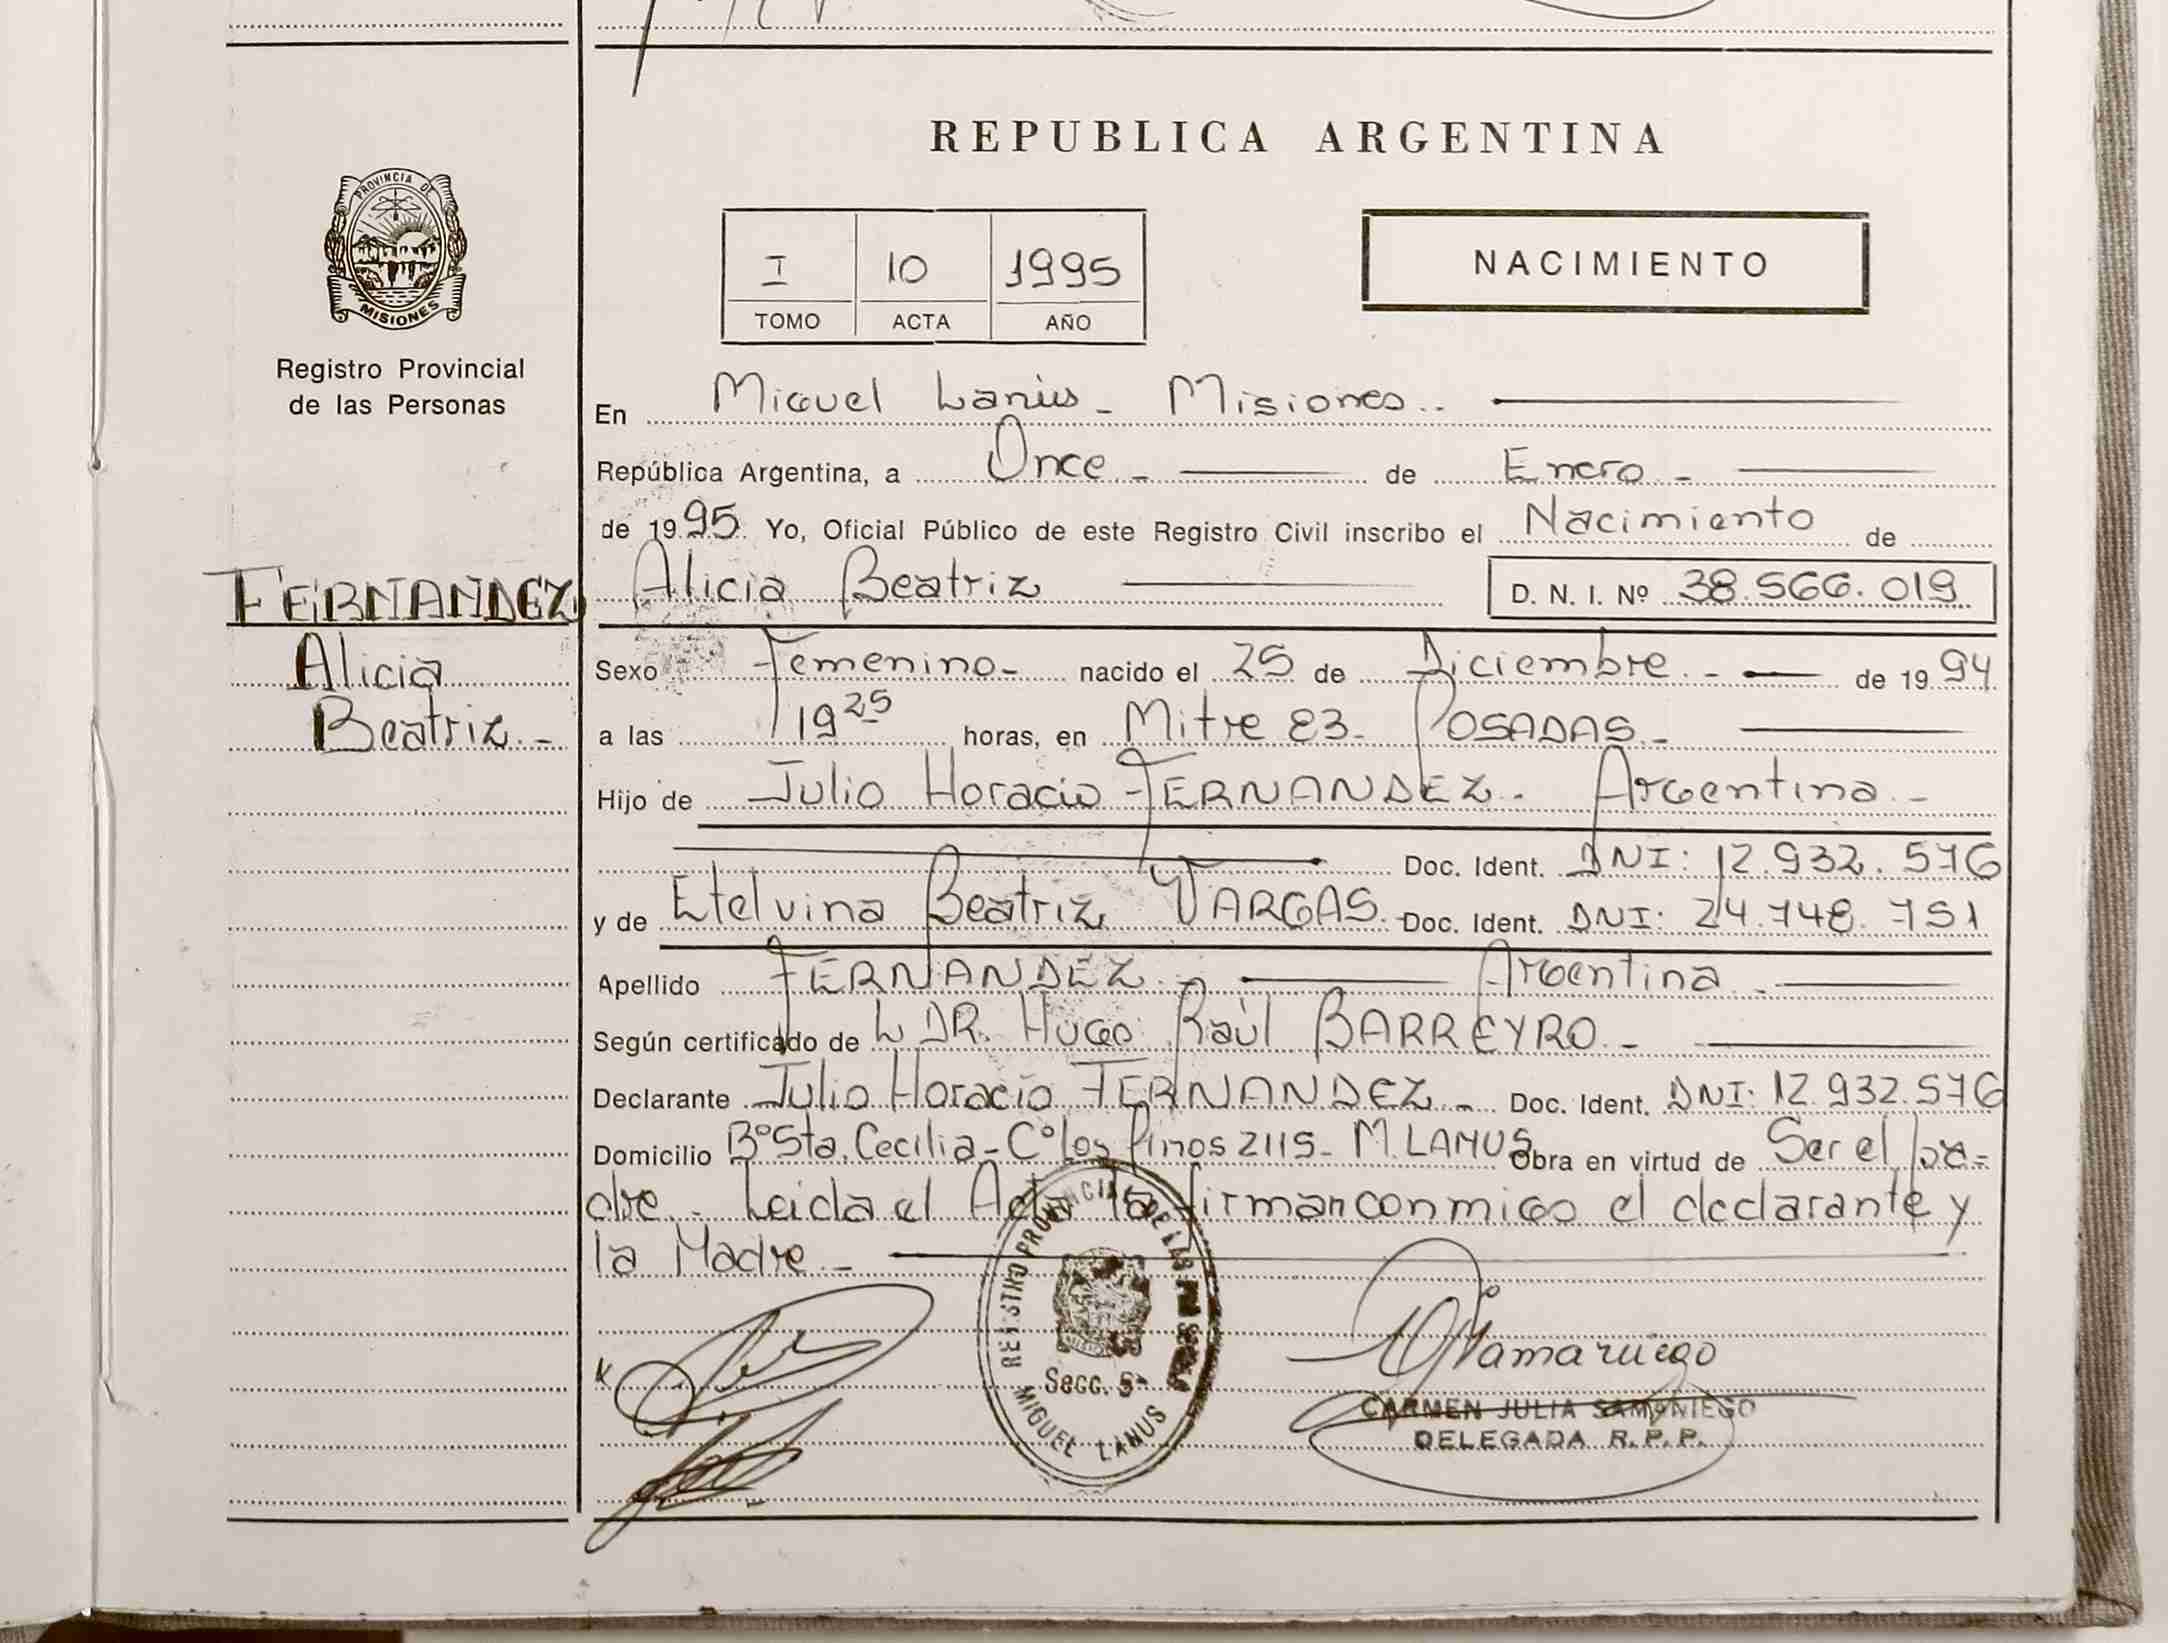 PROVINCIA DE
MISIONES
Registro Provincial
de las Personas
REPUBLICA ARGENTINA
I 10 1995
TOMO ACTA AÑO
NACIMIENTO
En Miguel Lanús - Misiones..
República Argentina, a Once - de Enero -
de 1995 Yo, Oficial Público de este Registro Civil inscribo el Nacimiento de
FERNANDEZ
Alicia
Beatriz.-
Alicia Beatriz D. N. I. Nº 38.566.019
Sexo Femenino- nacido el 25 de Diciembre.- de 1994
a las 19 25 horas, en Mitre 83- POSADAS.-
Hijo de Julio Horacio FERNANDEZ. Argentina.-
Doc. Ident. DNI: 12.932.576
y de Etelvina Beatriz VARGAS. Doc. Ident. DNI: 24.748.751
Apellido FERNANDEZ.- Argentina.-
Según certificado de L DR. Hugo Raúl BARREYRO.-
Declarante Julio Horacio FERNANDEZ.- Doc. Ident. DNI: 12.932.576
Domicilio BºSta.Cecilia-Cºlos Pinos 2115- M.LANUS Obra en virtud de Ser el pa-
dre.- Leida el Acta la firman conmigo el declarante y
la Madre.-
REGISTRO PROVINCIAL DE LAS PERSONAS
Secc. 5ª
MIGUEL LANUS
CARMEN JULIA SAMANIEGO
DELEGADA R.P.P.